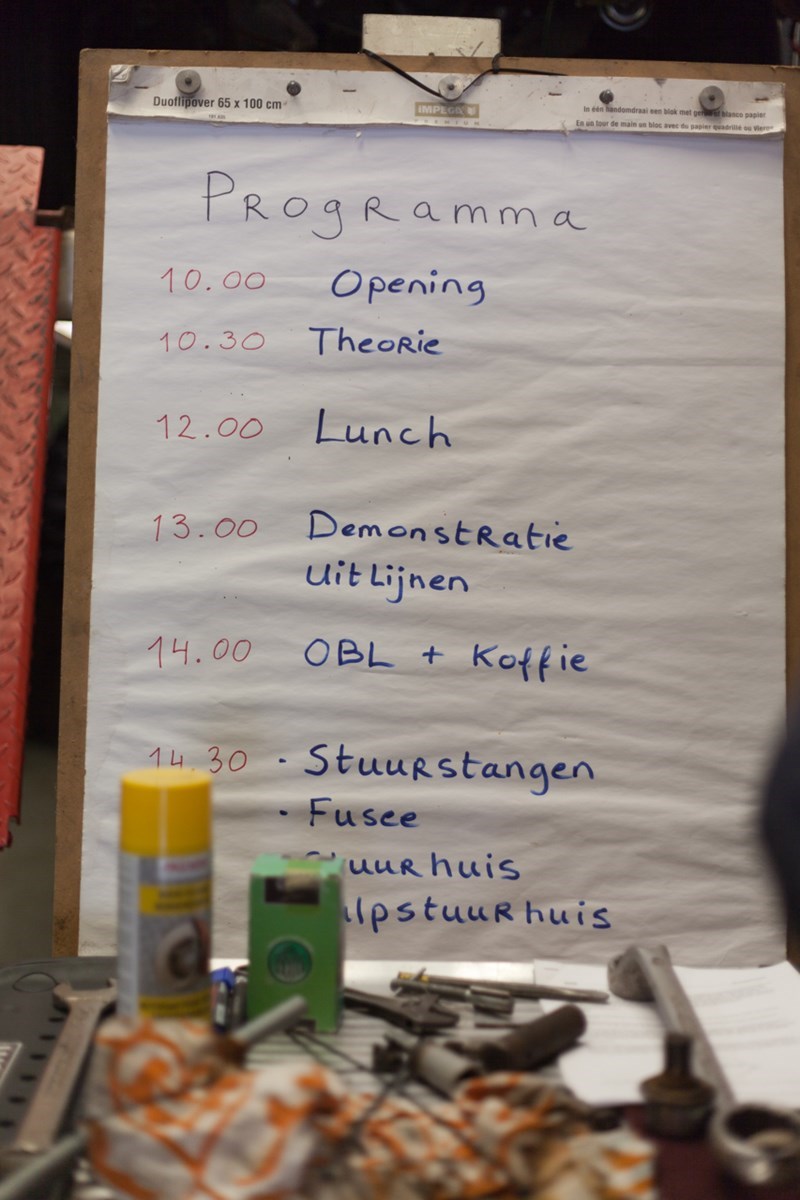 Duoflipover 65 x 100 cm
IMPEGA
PREMIUM
In één handomdraai een blok met geruit of blanco papier
En un tour de main un bloc avec du papier quadrillé ou vierge
Programma
10.00 Opening
10.30 Theorie
12.00 Lunch
13.00 Demonstratie
uitlijnen
14.00 OBL + Koffie
14.30 · Stuurstangen
· Fusee
· Stuurhuis
ulpstuurhuis